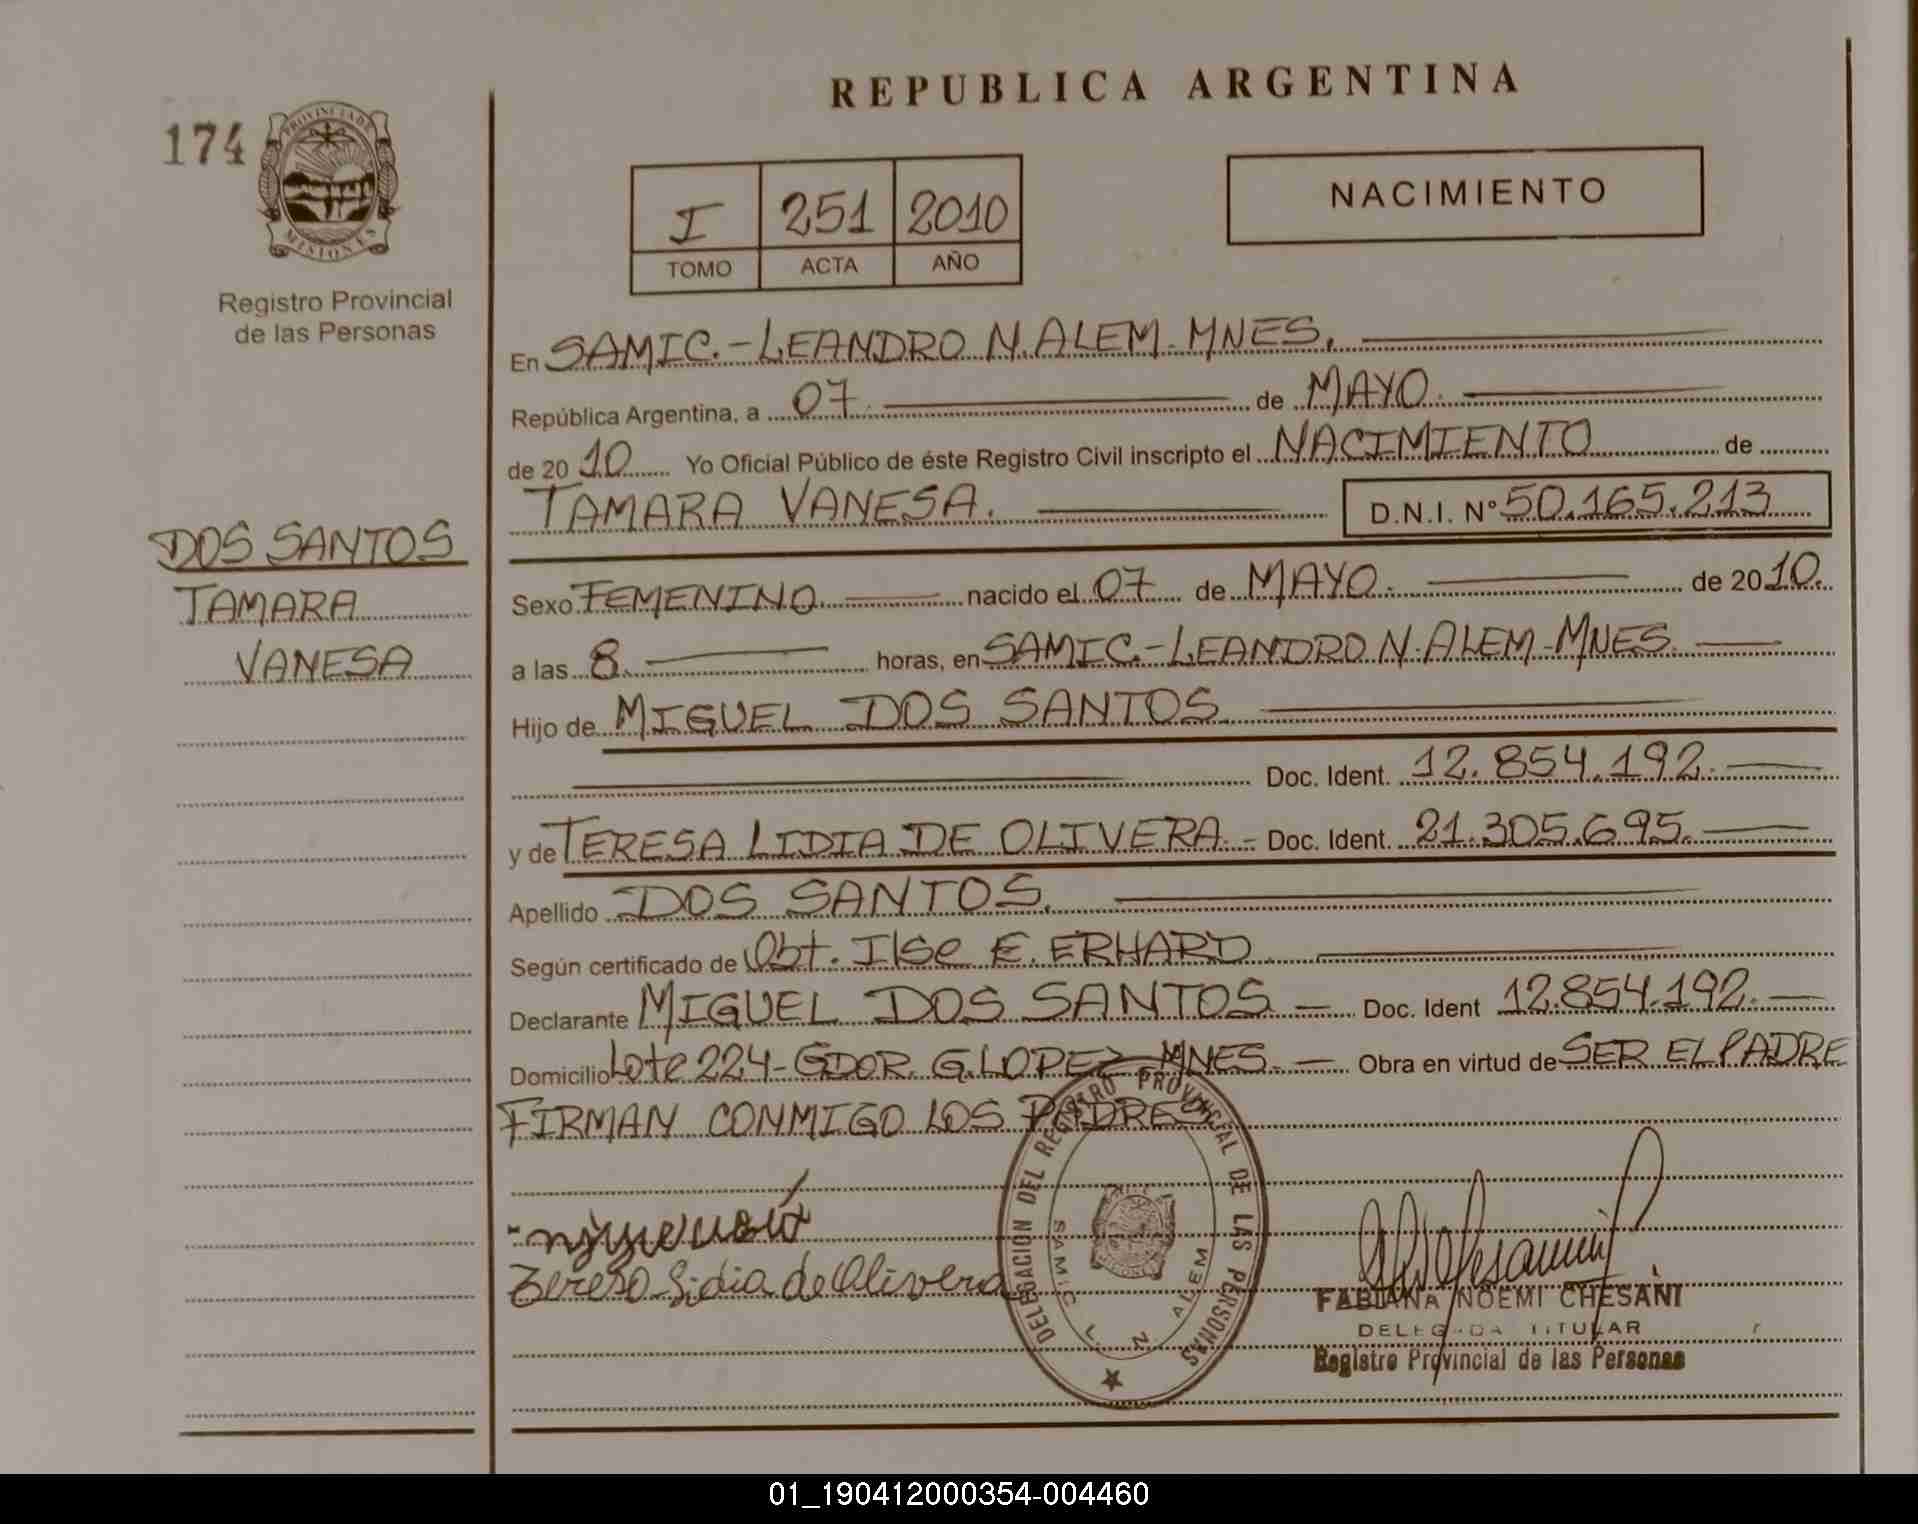 REPUBLICA ARGENTINA
174
PROVINCIA DE
MISIONES
Registro Provincial
de las Personas
I 251 2010
TOMO ACTA AÑO
NACIMIENTO
DOS SANTOS
TAMARA
VANESA
En SAMIC.-LEANDRO N. ALEM-MNES.
República Argentina, a 07. de MAYO.
de 20 10 Yo Oficial Público de éste Registro Civil inscripto el NACIMIENTO de
TAMARA VANESA. D.N.I. Nº 50.165.213
Sexo FEMENINO. nacido el 07 de MAYO. de 20 10.
a las 8. horas, en SAMIC.-LEANDRO N. ALEM-MNES.
Hijo de MIGUEL DOS SANTOS.
Doc. Ident. 12.854.192.
y de TERESA LIDIA DE OLIVERA.- Doc. Ident. 21.305.695.
Apellido DOS SANTOS.
Según certificado de Obt. Ilse E. ERHARD.
Declarante MIGUEL DOS SANTOS - Doc. Ident 12.854.192.
Domicilio Lote 224-GDOR. G. LOPEZ-MNES. - Obra en virtud de SER EL PADRE
FIRMAN CONMIGO LOS PADRES
Teresa Lidia de Olivera
DELEGACION DEL REGISTRO PROVINCIAL DE LAS PERSONAS
SAMIC L. N. ALEM
FABIANA NOEMI CHESANI
DELEGADA TITULAR
Registro Provincial de las Personas
01_190412000354-004460